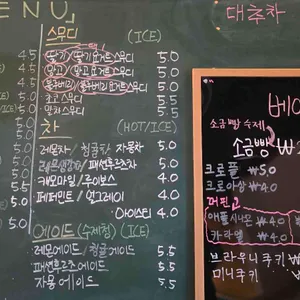 ENU」
스무디 (ICE)
딸기 / 딸기요거트스무디 5.0
망고 / 망고 요거트스무디 5.0
블루베리 / 블루베리요거트스무디 5.0
초코 스무디 5.5
말차 스무디 5.5
차 (HOT/ICE)
레몬차 / 청귤차 자몽차 5.0
레몬생강차 / 패션후르츠차 5.0
캐모마일 / 루이보스 4.0
페퍼민트 / 얼그레이 4.0
아이스티 4.0
에이드 (수제청) (ICE)
레몬에이드 / 청귤에이드 5.5
패션후르츠에이드 5.5
자몽에이드 5.5
4.5
4.5
4.5
5.0
5.0
5.0
대추차
베이
소금빵 수제
소금빵 ₩
크로플 ₩5.0
크로아상 ₩4.0
머핀류
애플시나몬 ₩4.0
카라멜 ₩4.0
브라우니쿠키 ₩
미니쿠키